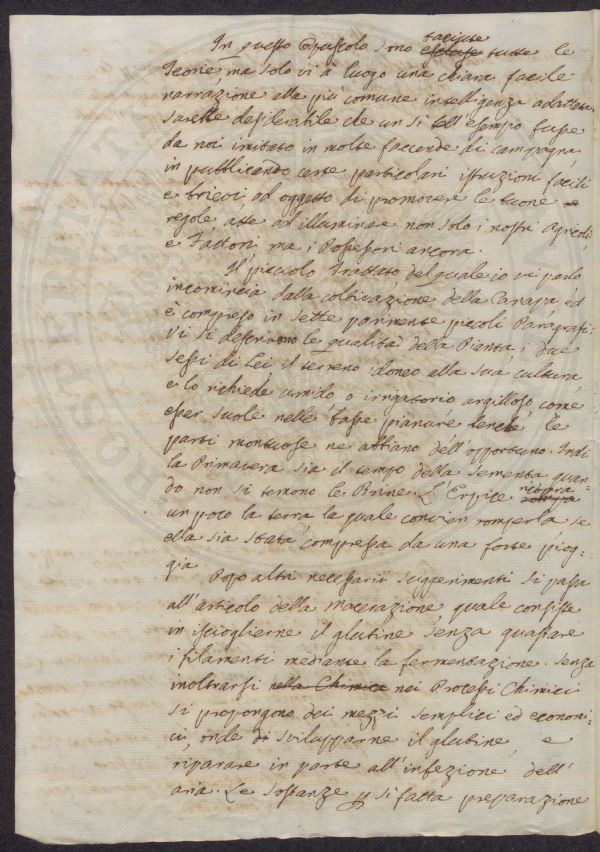 In questo Opuscolo sono taciute escluse tutte le
Teorie, ma solo vi à luogo una chiara facile
narrazione alla più comune intelligenza adattata
Sarebbe desiderabile che un sì bell'esempio fusse
da noi imitato in molte faccende di campagna
in pubblicando certe particolari istruzioni facili
e brievi ad oggetto di promovere le buone
regole atte ad illuminare non solo i nostri Agricoli
e Fattori, ma i Possessori ancora.
Il picciolo Trattato del quale io vi parlo
incomincia dalla coltivazione della Canapa ed
è compreso in Sette parimente piccoli Paragrafi.
Vi si descrivono le qualità della Pianta, i due
Sessi di Lei, il terreno idoneo alla sua cultura
e lo richiede umido o irrigatorio argilloso, come
esser suole nelle basse pianure benchè le
parti montuose ne abbiano dell'opportuno. Indi
la Primavera sia il tempo della Sementa quan=
do non si temono le Brine. L'Erpice ricopra rompa
un poco la terra la quale convien romperla se
ella sia stata compressa da una forte piog=
gia.
Dopo altri necessarii suggerimenti si passa
all'articolo della macerazione quale consiste
in isciogliere il glutine senza guastare
i filamenti mediante la fermentazione. Senza
inoltrarsi nella Chimica nei Processi Chimici
si propongono dei mezzi semplici ed economi=
ci, onde di svilupparne il glutine, e
riparare in parte all'infezione dell'
aria. Le Sostanze p si fatta preparazione